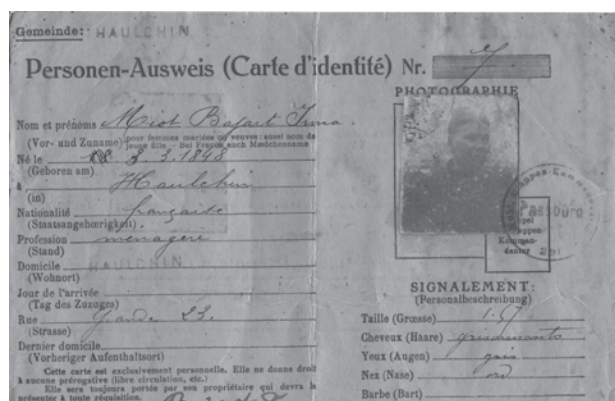 Gemeinde: HAULCHIN
Personen-Ausweis (Carte d'identité) Nr. 7
PHOTOGRAPHIE
Nom et prénoms Miot Irma
(Vor- und Zuname) pour femmes mariées ou veuves: aussi nom de
jeune fille - Bei Frauen auch Maedchenname
Né le 3.3.1898
(Geboren am)
à Haulchin
(in)
Nationalité française
(Staatsangehoerigkeit).
Profession ménagère
(Stand)
Domicile HAULCHIN
(Wohnort)
Jour de l'arrivée
(Tag des Zuzuges)
Rue Grande 23.
(Strasse)
Dernier domicile
(Vorheriger Aufenthaltsort)
Cette carte est exclusivement personnelle. Elle ne donne droit
à aucune prérogative (libre circulation, etc.)
Elle sera toujours portée par son propriétaire qui devra la
présenter à toute réquisition.
Etappen-Komman
dantur
SIGNALEMENT:
(Personalbeschreibung)
Taille (Grœsse) 1.57
Cheveux (Haare) grisonnants
Yeux (Augen) gris
Nez (Nase) ord
Barbe (Bart)